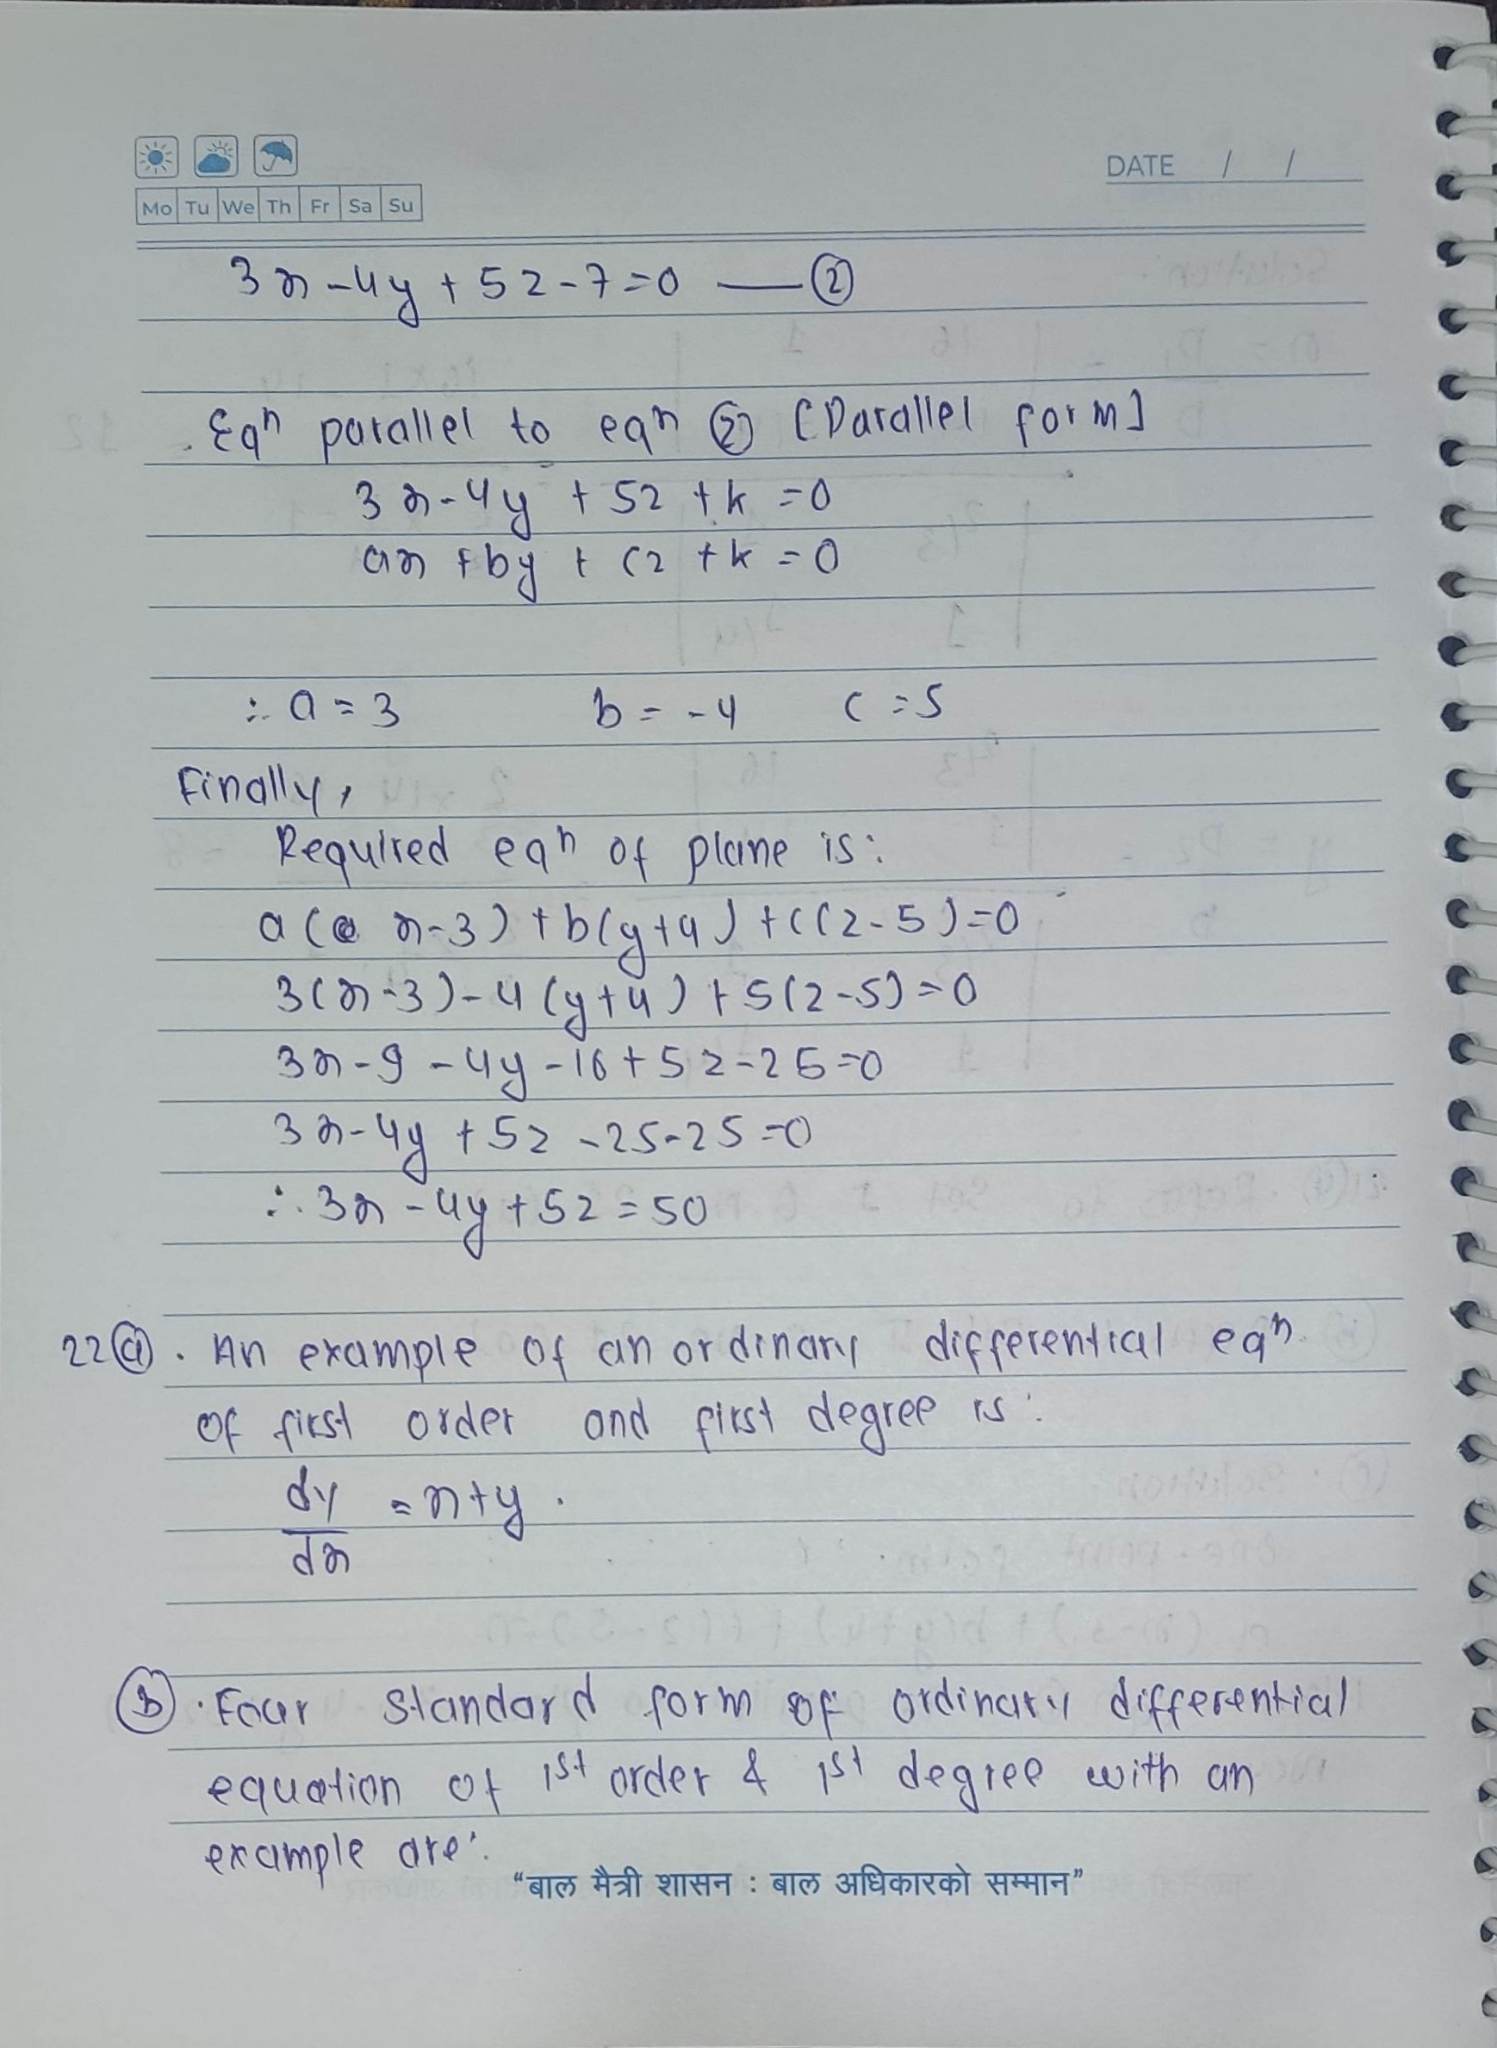 DATE / /
Mo Tu We Th Fr Sa Su
3x-4y+5z-7=0 — ②
Eqn parallel to eqn ② [Parallel form]
3x-4y+5z+k=0
ax+by+cz+k=0
∴ a=3 b=-4 c=5
Finally,
Required eqn of plane is:
a(x-3)+b(y+4)+c(z-5)=0
3(x-3)-4(y+4)+5(z-5)=0
3x-9-4y-16+5z-25=0
3x-4y+5z-25-25=0
∴ 3x-4y+5z=50
22ⓐ. An example of an ordinary differential eqn
of first order and first degree is:
dy/dx = x+y.
ⓑ. Four standard form of ordinary differential
equation of 1st order & 1st degree with an
example are:
“बाल मैत्री शासन : बाल अधिकारको सम्मान”